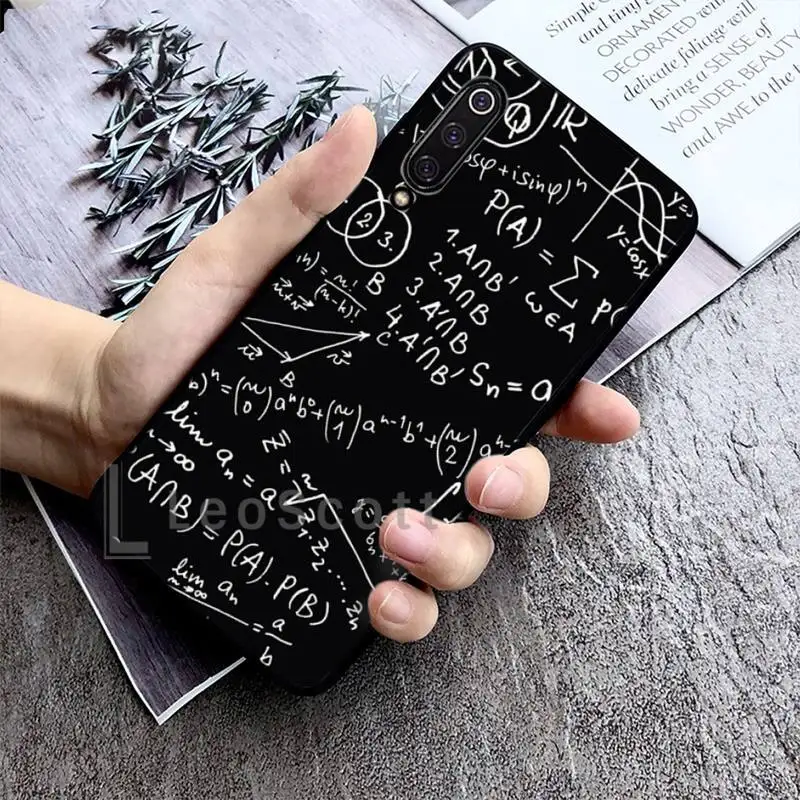 Simple C
and tiny
ORNAMEN
DECORATED with
delicate foliage will
bring a SENSE of
WONDER, BEAUTY
and AWE to the
ℕ
φ
ℝ
osφ + i sinφ)ⁿ
y=
y=cosx
P(A) = Σ P(
ω∈A
2. 3.
B
1. A∩B'
2. A∩B
3. A'∩B
4. A'∩B'
n) = n!
(n-k)!
u⃗+v⃗
u⃗
v⃗
C
B
Sₙ = a
b)ⁿ = (n 0) aⁿb⁰ + (n 1) aⁿ⁻¹b¹ + (n 2) aⁿ⁻
lim aₙ = a
n→∞
z = ⁿ√z₁·z₂....zₙ
P(A∩B) = P(A).P(B)
lim aₙ
n→∞
= a
b
LeoScott